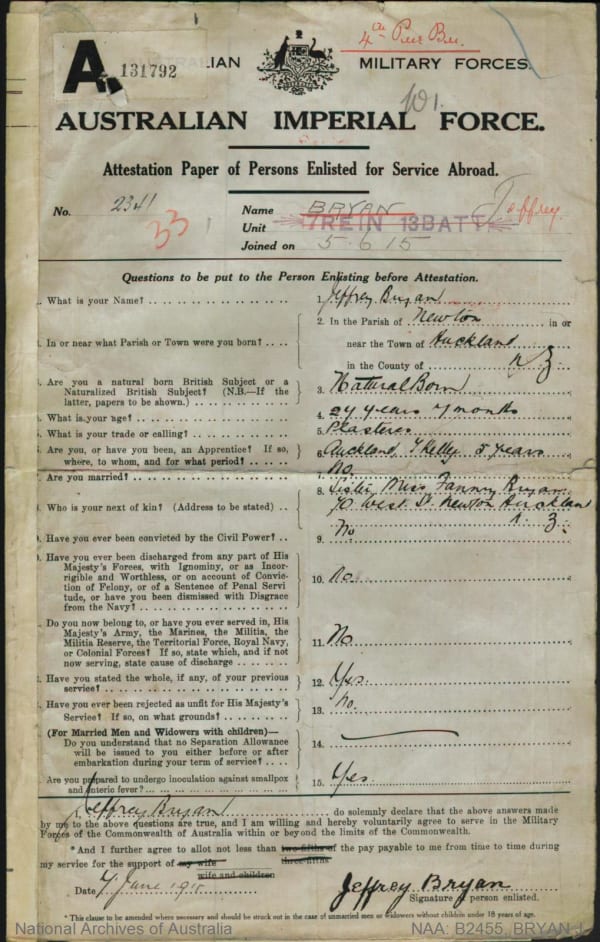 4th Pnr Bn.
A. 131792
ALIAN MILITARY FORCES.
101.
AUSTRALIAN IMPERIAL FORCE.
Attestation Paper of Persons Enlisted for Service Abroad.
No. 2341
33
Name BRYAN Jeffrey.
Unit 7 REIN 13 BATT
Joined on 5.6.15
Questions to be put to the Person Enlisting before Attestation.
. What is your Name? 1. Jeffrey Bryan
. In or near what Parish or Town were you born? 2. In the Parish of Newton in or
near the Town of Auckland
in the County of N Z.
. Are you a natural born British Subject or a
Naturalized British Subject? (N.B.—If the
latter, papers to be shown.) 3. Natural Born
. What is your age? 4. 24 years 7 months
. What is your trade or calling? 5. Plasterer
. Are you, or have you been, an Apprentice? If so,
where, to whom, and for what period? 6. Auckland 5 years
. Are you married? 7. No
. Who is your next of kin? (Address to be stated) 8. Sister Miss Fanny Bryan
70 West St. Newton Auckland
N. Z.
. Have you ever been convicted by the Civil Power? 9. No
. Have you ever been discharged from any part of His
Majesty's Forces, with Ignominy, or as Incor-
rigible and Worthless, or on account of Convic-
tion of Felony, or of a Sentence of Penal Servi-
tude, or have you been dismissed with Disgrace
from the Navy? 10. No.
Do you now belong to, or have you ever served in, His
Majesty's Army, the Marines, the Militia, the
Militia Reserve, the Territorial Force, Royal Navy,
or Colonial Forces? If so, state which, and if not
now serving, state cause of discharge 11. No
. Have you stated the whole, if any, of your previous
service? 12. Yes.
. Have you ever been rejected as unfit for His Majesty's
Service? If so, on what grounds? 13. No.
(For Married Men and Widowers with children)—
Do you understand that no Separation Allowance
will be issued to you either before or after
embarkation during your term of service? 14.
Are you prepared to undergo inoculation against smallpox
and enteric fever? 15. Yes.
I, Jeffrey Bryan do solemnly declare that the above answers made
by me to the above questions are true, and I am willing and hereby voluntarily agree to serve in the Military
Forces of the Commonwealth of Australia within or beyond the limits of the Commonwealth.
*And I further agree to allot not less than two-fifths of the pay payable to me from time to time during
three-fifths
my service for the support of my wife
wife and children
Date 7 June 1915 Jeffrey Bryan
Signature of person enlisted.
* This clause to be amended where necessary and should be struck out in the case of unmarried men or widowers without children under 18 years of age.
National Archives of Australia NAA: B2455, BRYAN J